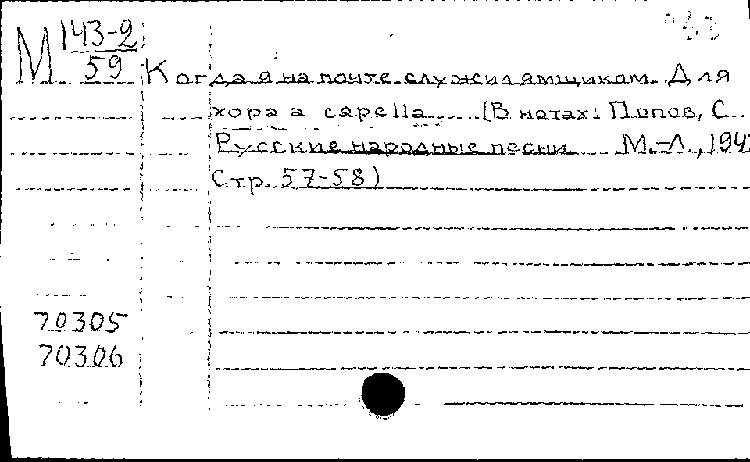 М 143-2
59
Когда я на почте служил ямщиком. Для
хора a capella (В нотах: Попов, С.
Русские народные песни М.-Л., 194
Стр. 57-58)
70305
70306